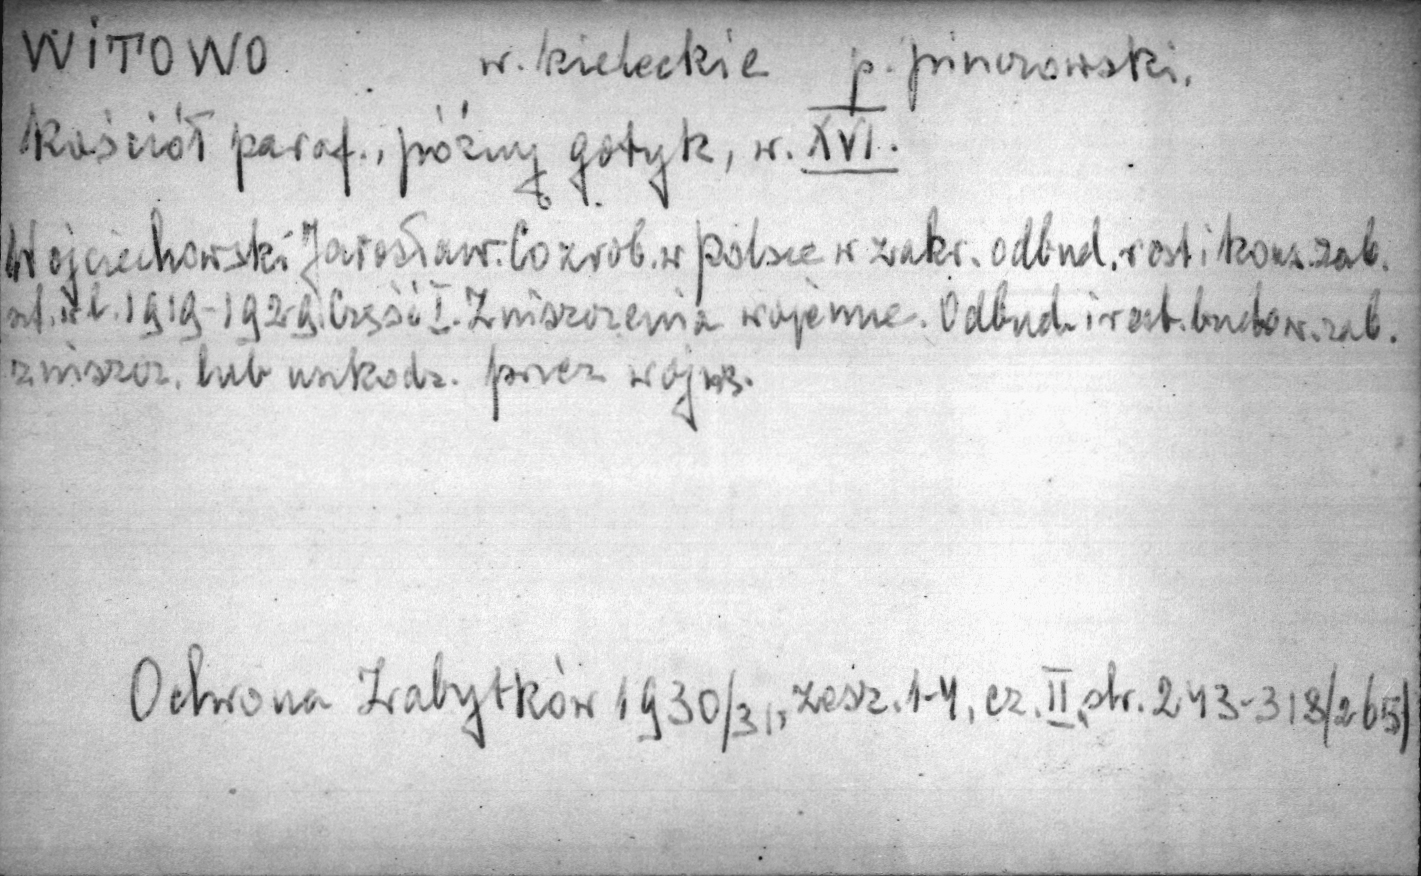 WITOWO w. kieleckie p. pinczowski.
Kościół paraf., późny gotyk, w. XVI.
Wojciechowski Jarosław. Co zrob. w Polsce w zakr. odbud. rest i kons. zab.
szt. w l. 1919-1929. Część I. Zniszczenia wojenne. Odbud. i rest. budow. zab.
zniszcz. lub uszkodz. przez wojnę.
Ochrona Zabytków 1930/31, zesz. 1-4, cz. II, str. 243-318/265)